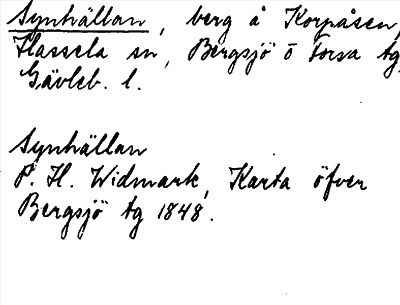 Synhällan, berg å Korpåsen,
Hassela sn, Bergsjö o Forsa tg,
Gävleb. l.
Synhällan
P. H. Widmark, Karta öfver
Bergsjö tg 1848.